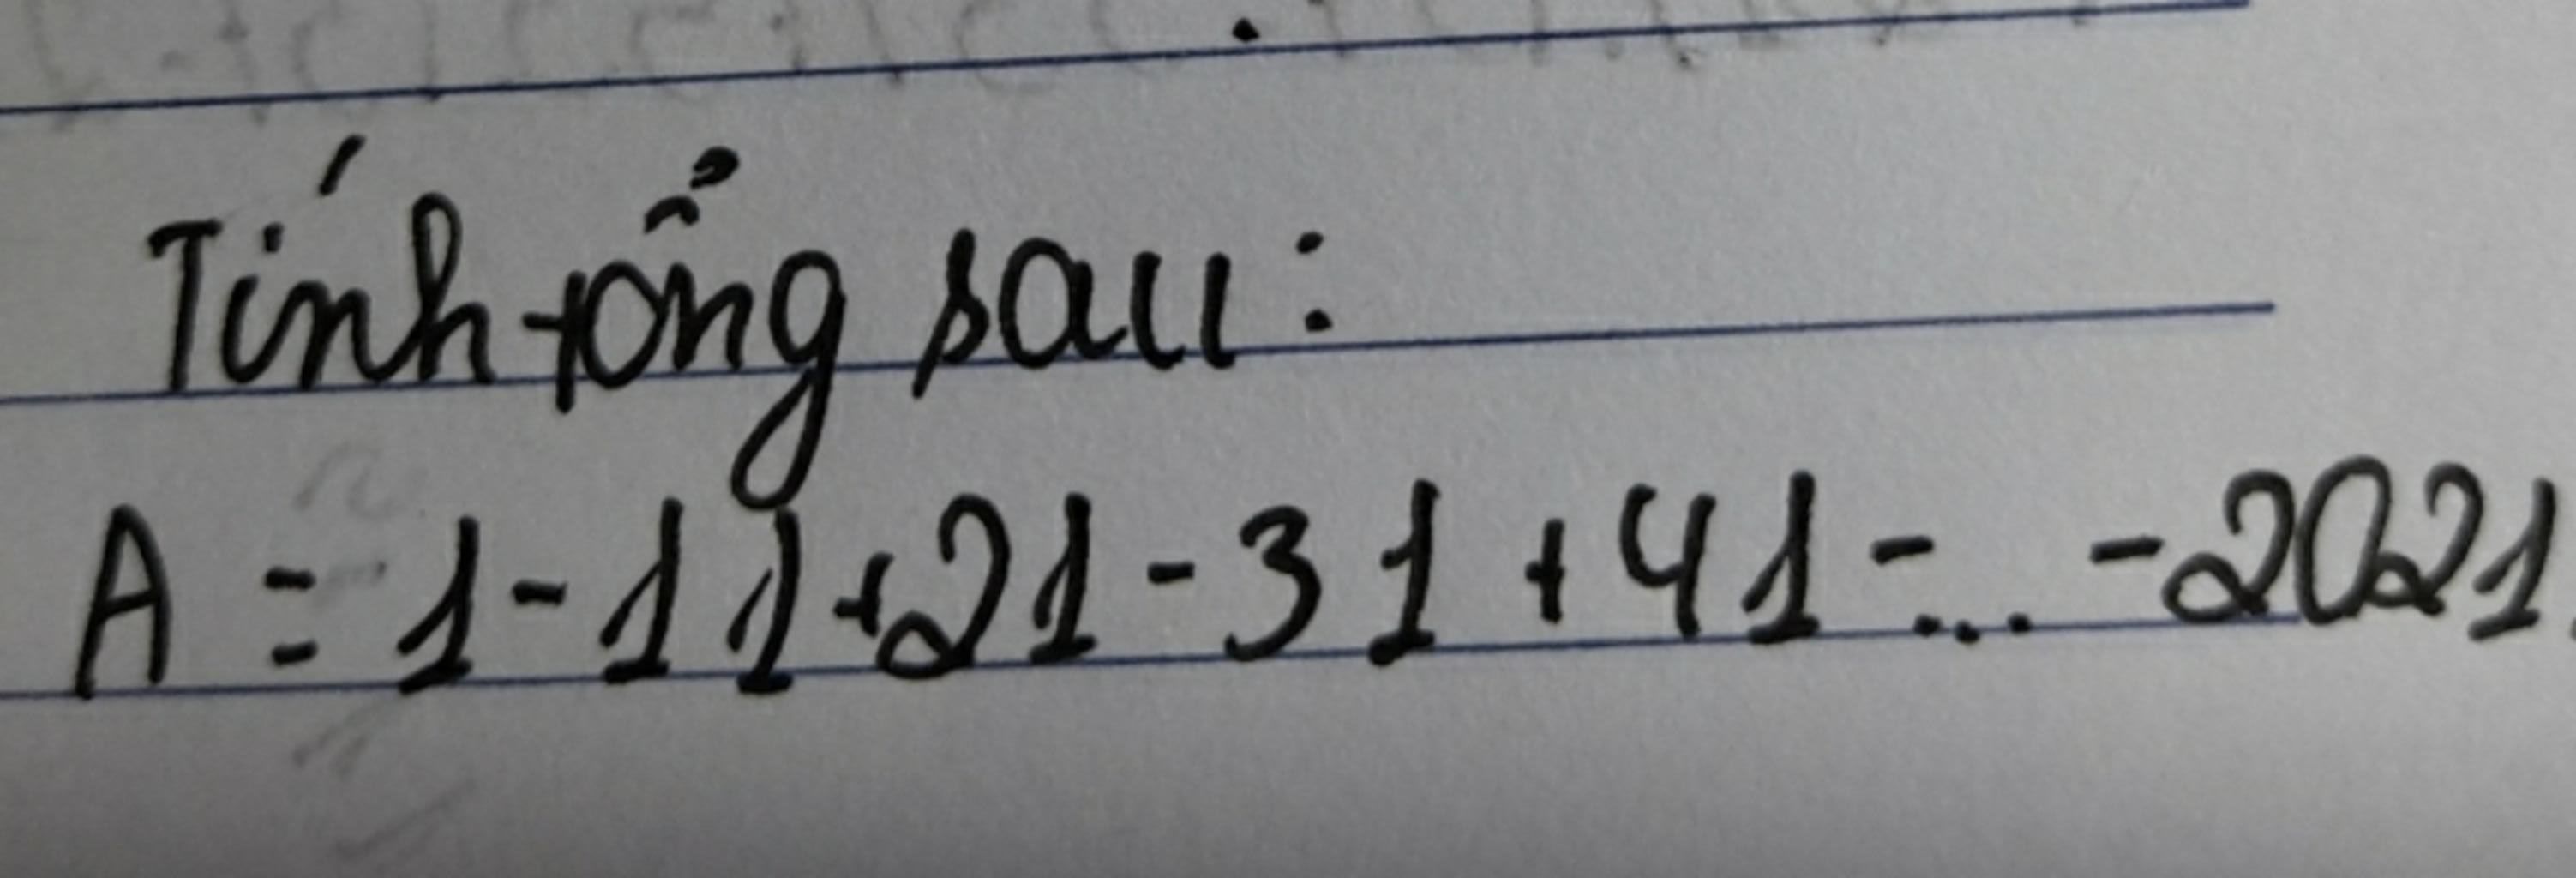 Tính tổng sau:
A = 1 - 11 + 21 - 31 + 41 - ... - 2021